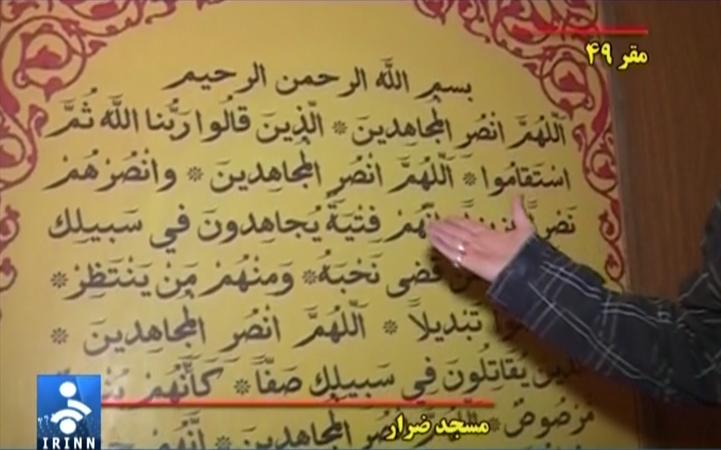 مقر ۴۹
بسم الله الرحمن الرحيم
اَللّهُمَّ انْصُرِ المُجاهِدينَ * الَّذينَ قالُوا رَبُّنا اللهُ ثُمَّ
اسْتَقامُوا * اَللّهُمَّ انْصُرِ المُجاهِدينَ * وانْصُرْهُمْ
نَصْراً إنَّهُمْ فِتْيَةٌ يُجاهِدونَ في سَبيلِكَ
قَضى نَحْبَهُ * وَمِنْهُمْ مَنْ يَنْتَظِرُ *
تَبْديلاً * اَللّهُمَّ انْصُرِ المُجاهِدينَ *
يُقاتِلُونَ في سَبيلِكَ صَفّاً * كَأَنَّهُمْ
مَرْصُوصٌ * انْصُرِ المُجاهِدينَ * إنَّهُمْ
مسجد ضرار
IRINN